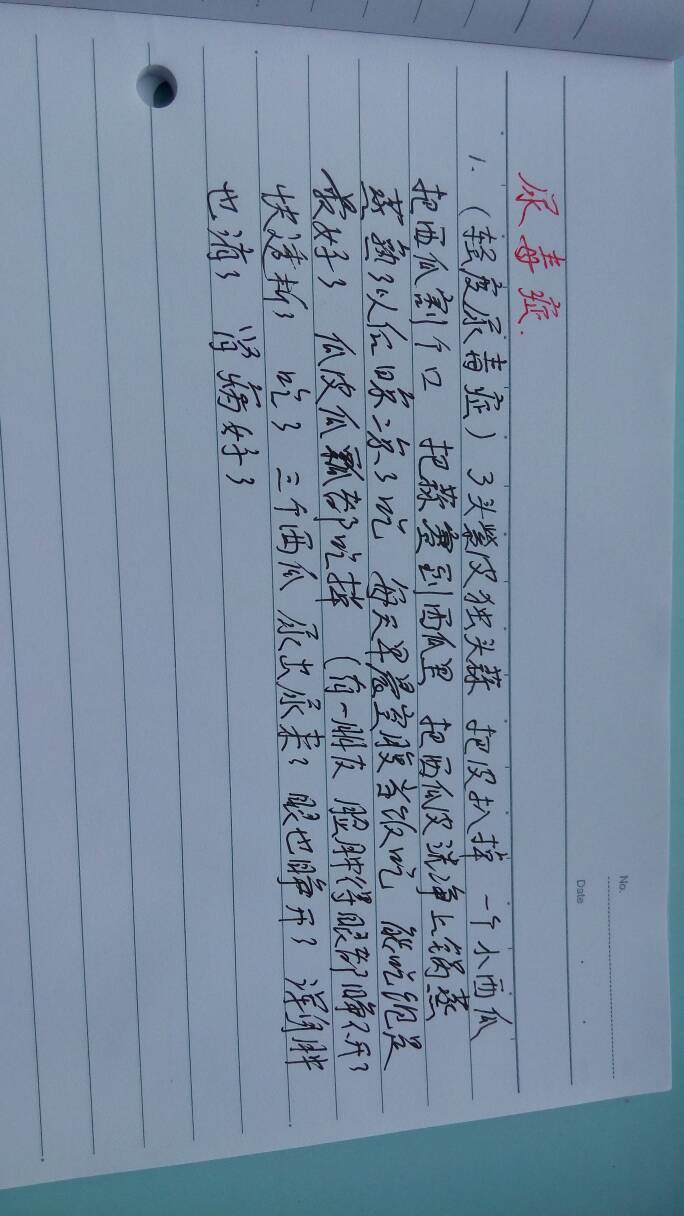 No.
Date
尿毒症.
1. (轻度尿毒症) 3头紫皮独头蒜 把皮扒掉 一个小西瓜
把西瓜割个口 把蒜塞到西瓜里 把西瓜皮洗净上锅蒸
蒸熟了以后晾凉了吃 每天早晨空腹当饭吃 能吃饱是
最好了 瓜皮瓜瓤都吃掉 (有一朋友 脸肿得眼都睁不开了
快透析了 吃了 三个西瓜 尿出尿来了 眼也睁开了 浑身肿
也消了 肾病好了